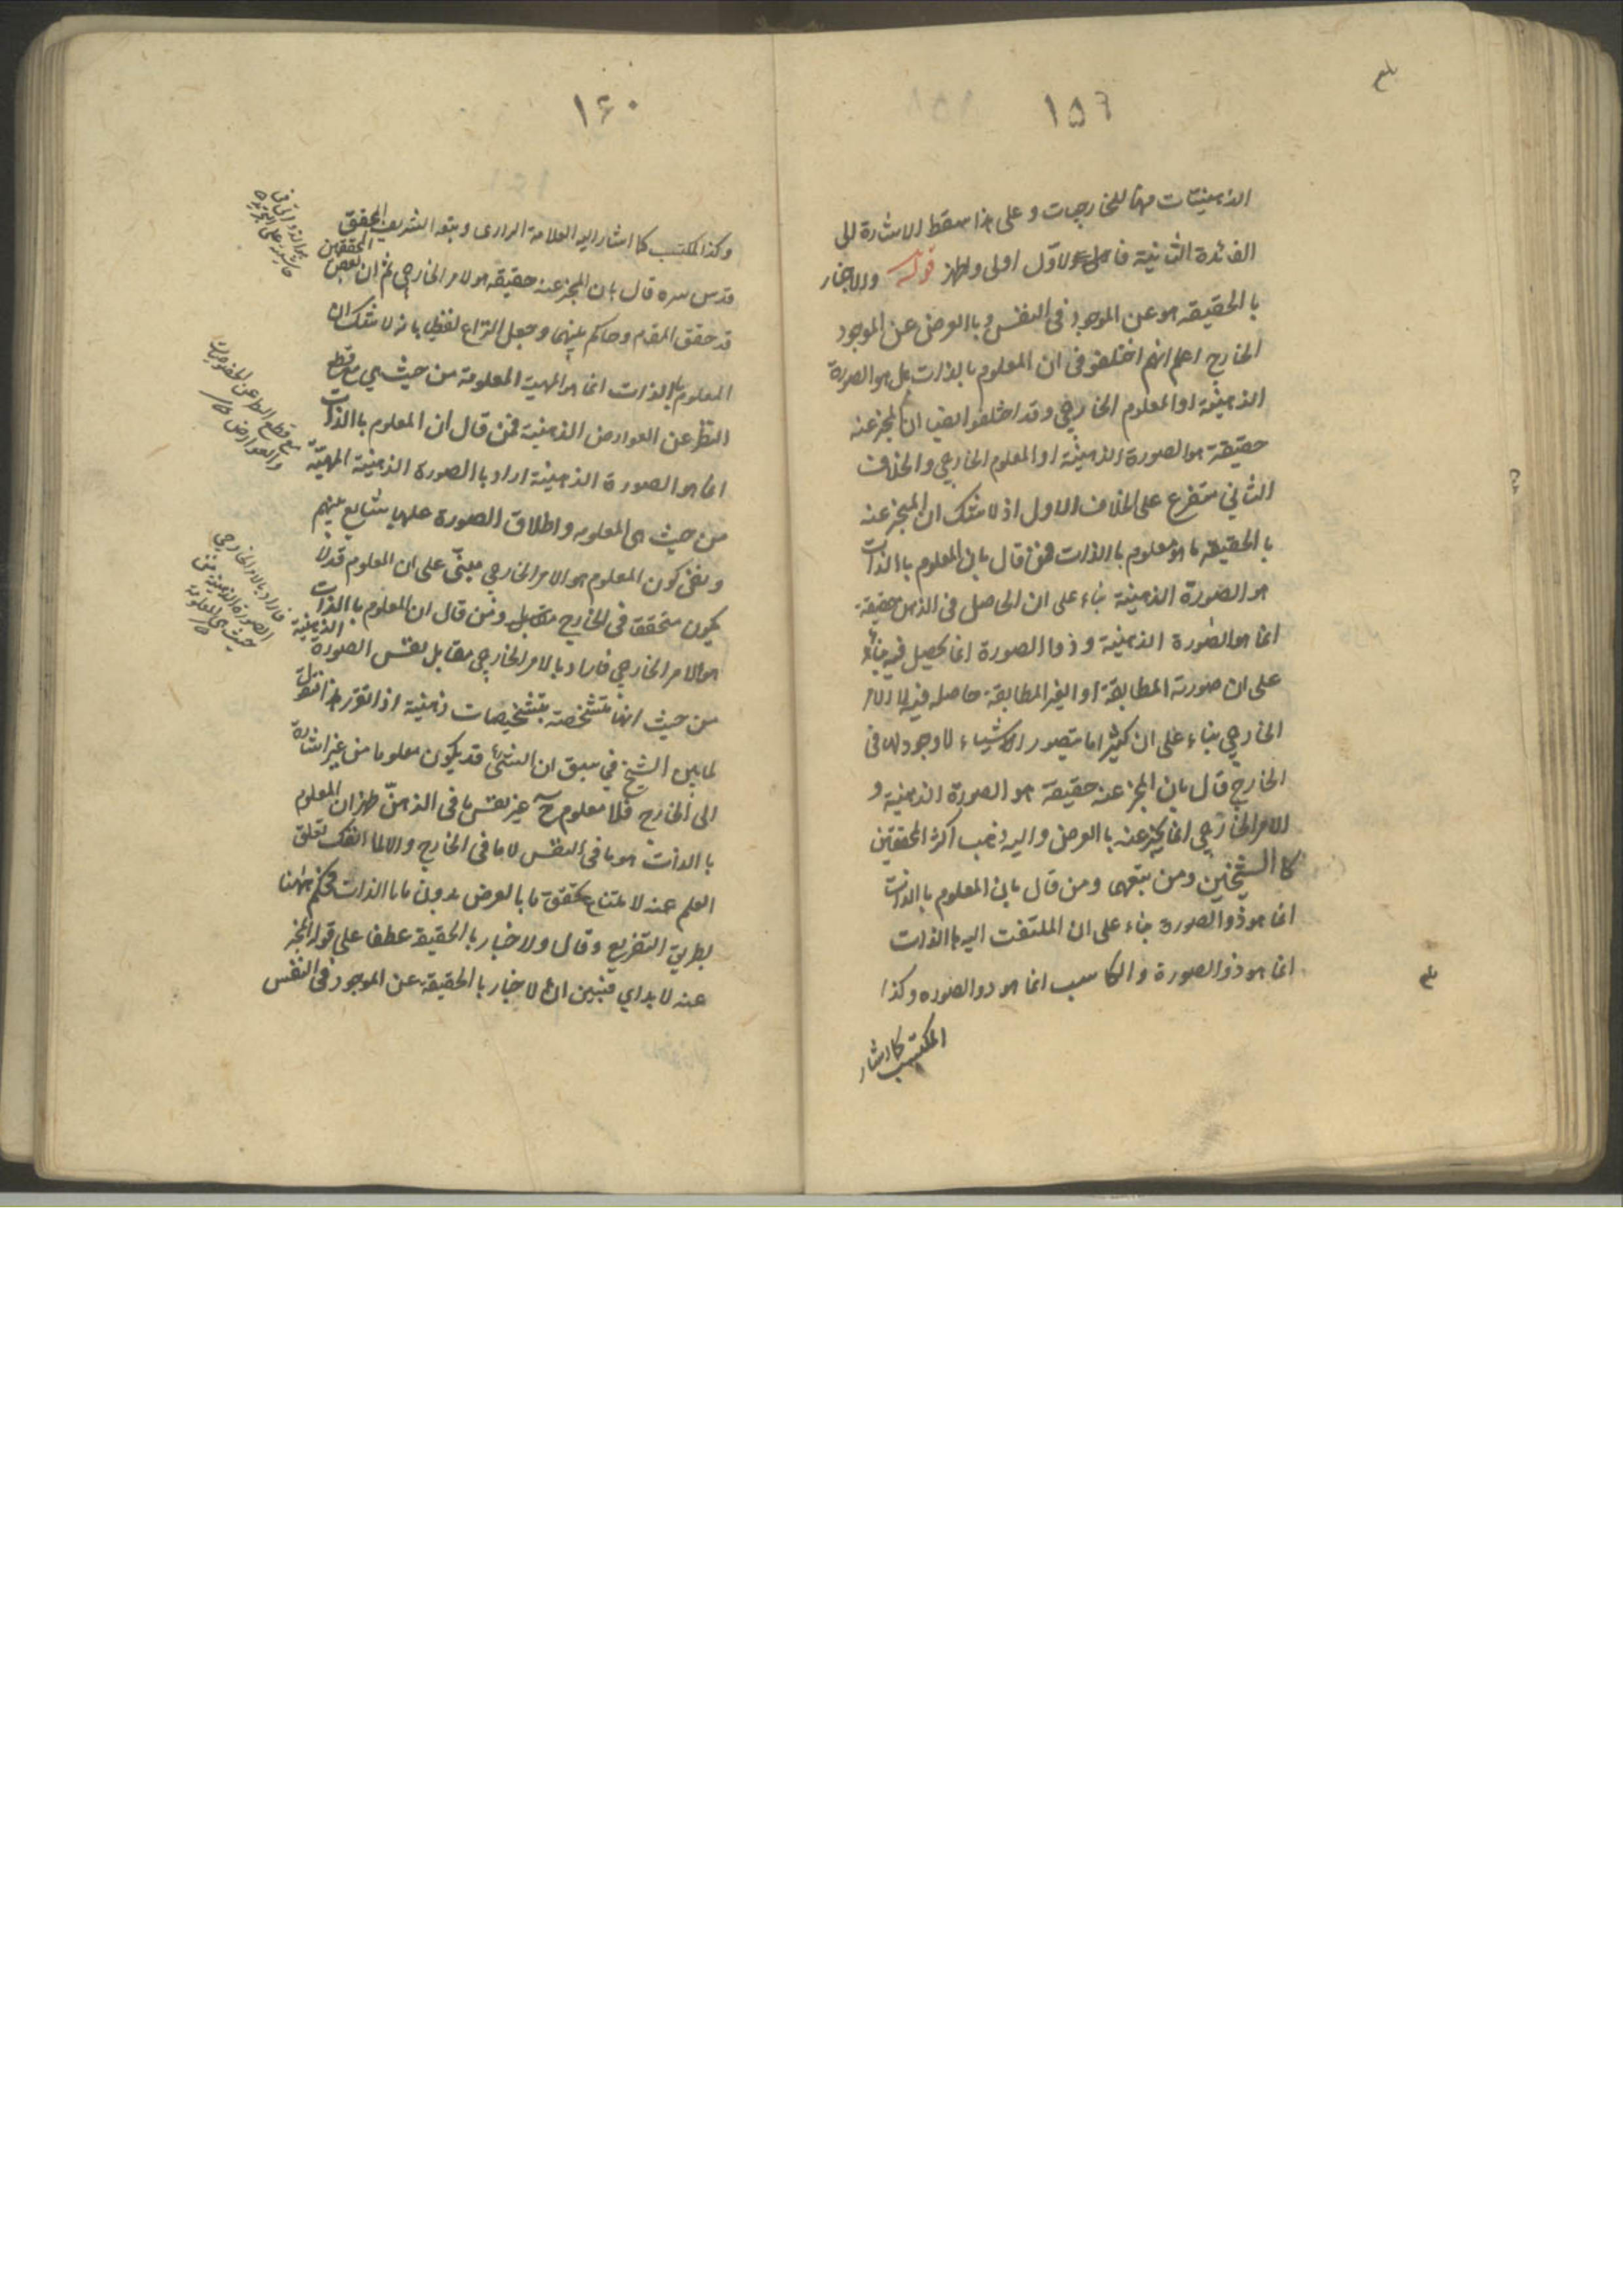 ١٥٦
الذهنيات مهنا للخارجيات وعلى هذا سقط الاشارة الى
الفائدة الثانية فا الاول اولى واظهر قوله والاخبار
با الحقيقة هو عن الموجود فى النفس و با العرض عن الموجود
الخارج اعلم انهم اختلفو فى ان المعلوم بالذات هل هو الصورة
الذهنية او المعلوم الخارجي وقد اختلفو ايضا ان المخبر عنه
حقيقة هو الصورة الذهنية او المعلوم الخارجي والخلاف
الثاني متفرع على الخلاف الاول اذ لا شك ان المخبر عنه
با الحقيقة ما هو معلوم با الذات فمن قال بان المعلوم با الذات
هو الصورة الذهنية بناء على ان الحاصل فى الذهن حقيقة
انما هو الصورة الذهنية و ذو الصورة انما يحصل فيه بناء
على ان صورته المطابقة او الغير المطابقة حاصله فيه لا الامر
الخارجي بناء على ان كثيرا ما يتصور الاشياء لا وجود لها فى
الخارج قال بان المخبر عنه حقيقة هو الصورة الذهنية و
الامر الخارجي انما يخبر عنه با العرض واليه ذهب اكثر المحققين
كا الشيخين ومن تبعهما ومن قال بان المعلوم با الذات
انما هو ذو الصورة بناء على ان الملتفت اليه با الذات
انما هو ذو الصورة والكاسب انما هو ذو الصوره وكذا
المكتسب كما اشار
١۶٠
وكذا المكتسب كما اشار اليه العلامة الرازى وتبعه الشريف المحقق
قدس سره قال بان المخبر عنه حقيقة هو لامر الخارجي ثم ان بعض المحققين
قد حقق المقام وحاكم بينهما وجعل النزاع لفظيا بانه لا شك ان
المعلوم با الذات انما هو المهية المعلومة من حيث هي مع قطع
النظر عن العوارض الذهنية فمن قال ان المعلوم با الذات
انما هو الصورة الذهنية اراد با الصورة الذهنية المهية
من حيث هى المعلومه واطلاق الصورة عليها شايع بينهم
ونفى كون المعلوم هو الامر الخارجي مبنى على ان المعلوم قد لا
يكون متحققا فى الخارج ومن قال ان المعلوم با الذات
هو الامر الخارجي فاراد بالامر الخارجي مقابل نفس الصورة الذهنية
من حيث انها متشخصة بتشخيصات ذهنية اذا تقرر هذا نقول
لما بين الشيخ في سبق ان الشئ قد يكون معلوما من غير اشارة
الى الخارج فلا معلوم ح غير نفس ما فى الذهن ظهر ان المعلوم
با الذات هو ما فى النفس لا ما فى الخارج والا لما انفك تعلق
العلم عنه لامتناع تحقق ما با لعرض بدون ما با الذات فحكم ههنا
بطريق التفريع وقال ولا خبار با الحقيقة عطفا على قوله المخبر
عنه لا بد اي فتبين ان الاخبار با الحقيقة عن الموجود فى النفس
مع قطع النظر عن الخصوصيات
والعوارض
فاراد بالامر الخارجي
الصورة الذهنية من
حيث هى المعلومة